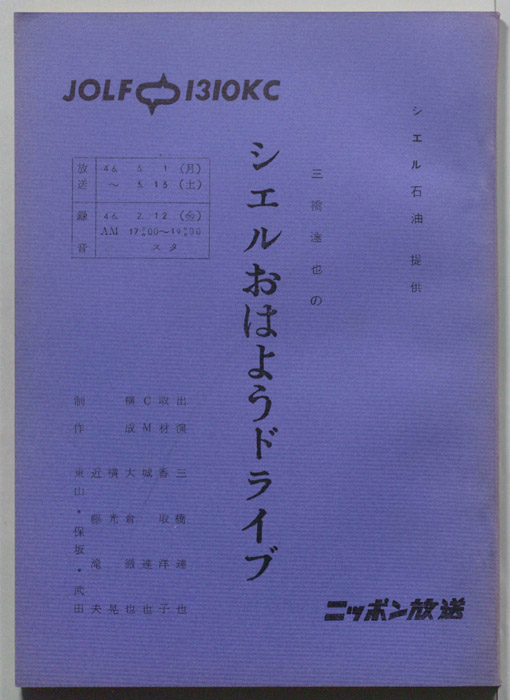 JOLF 1310KC
シエル石油 提供
三橋達也の
シエルおはようドライブ
放送 46. 3. 1 (月)
～ 3. 13 (土)
録音 46. 2. 12 (金)
AM 17:00～19:00
スタ
出演 三橋達也
取材 香取洋子
CM 城達也
構成 大倉徹也
横光晃
近藤滝夫
制作 東山・保坂・武田
ニッポン放送